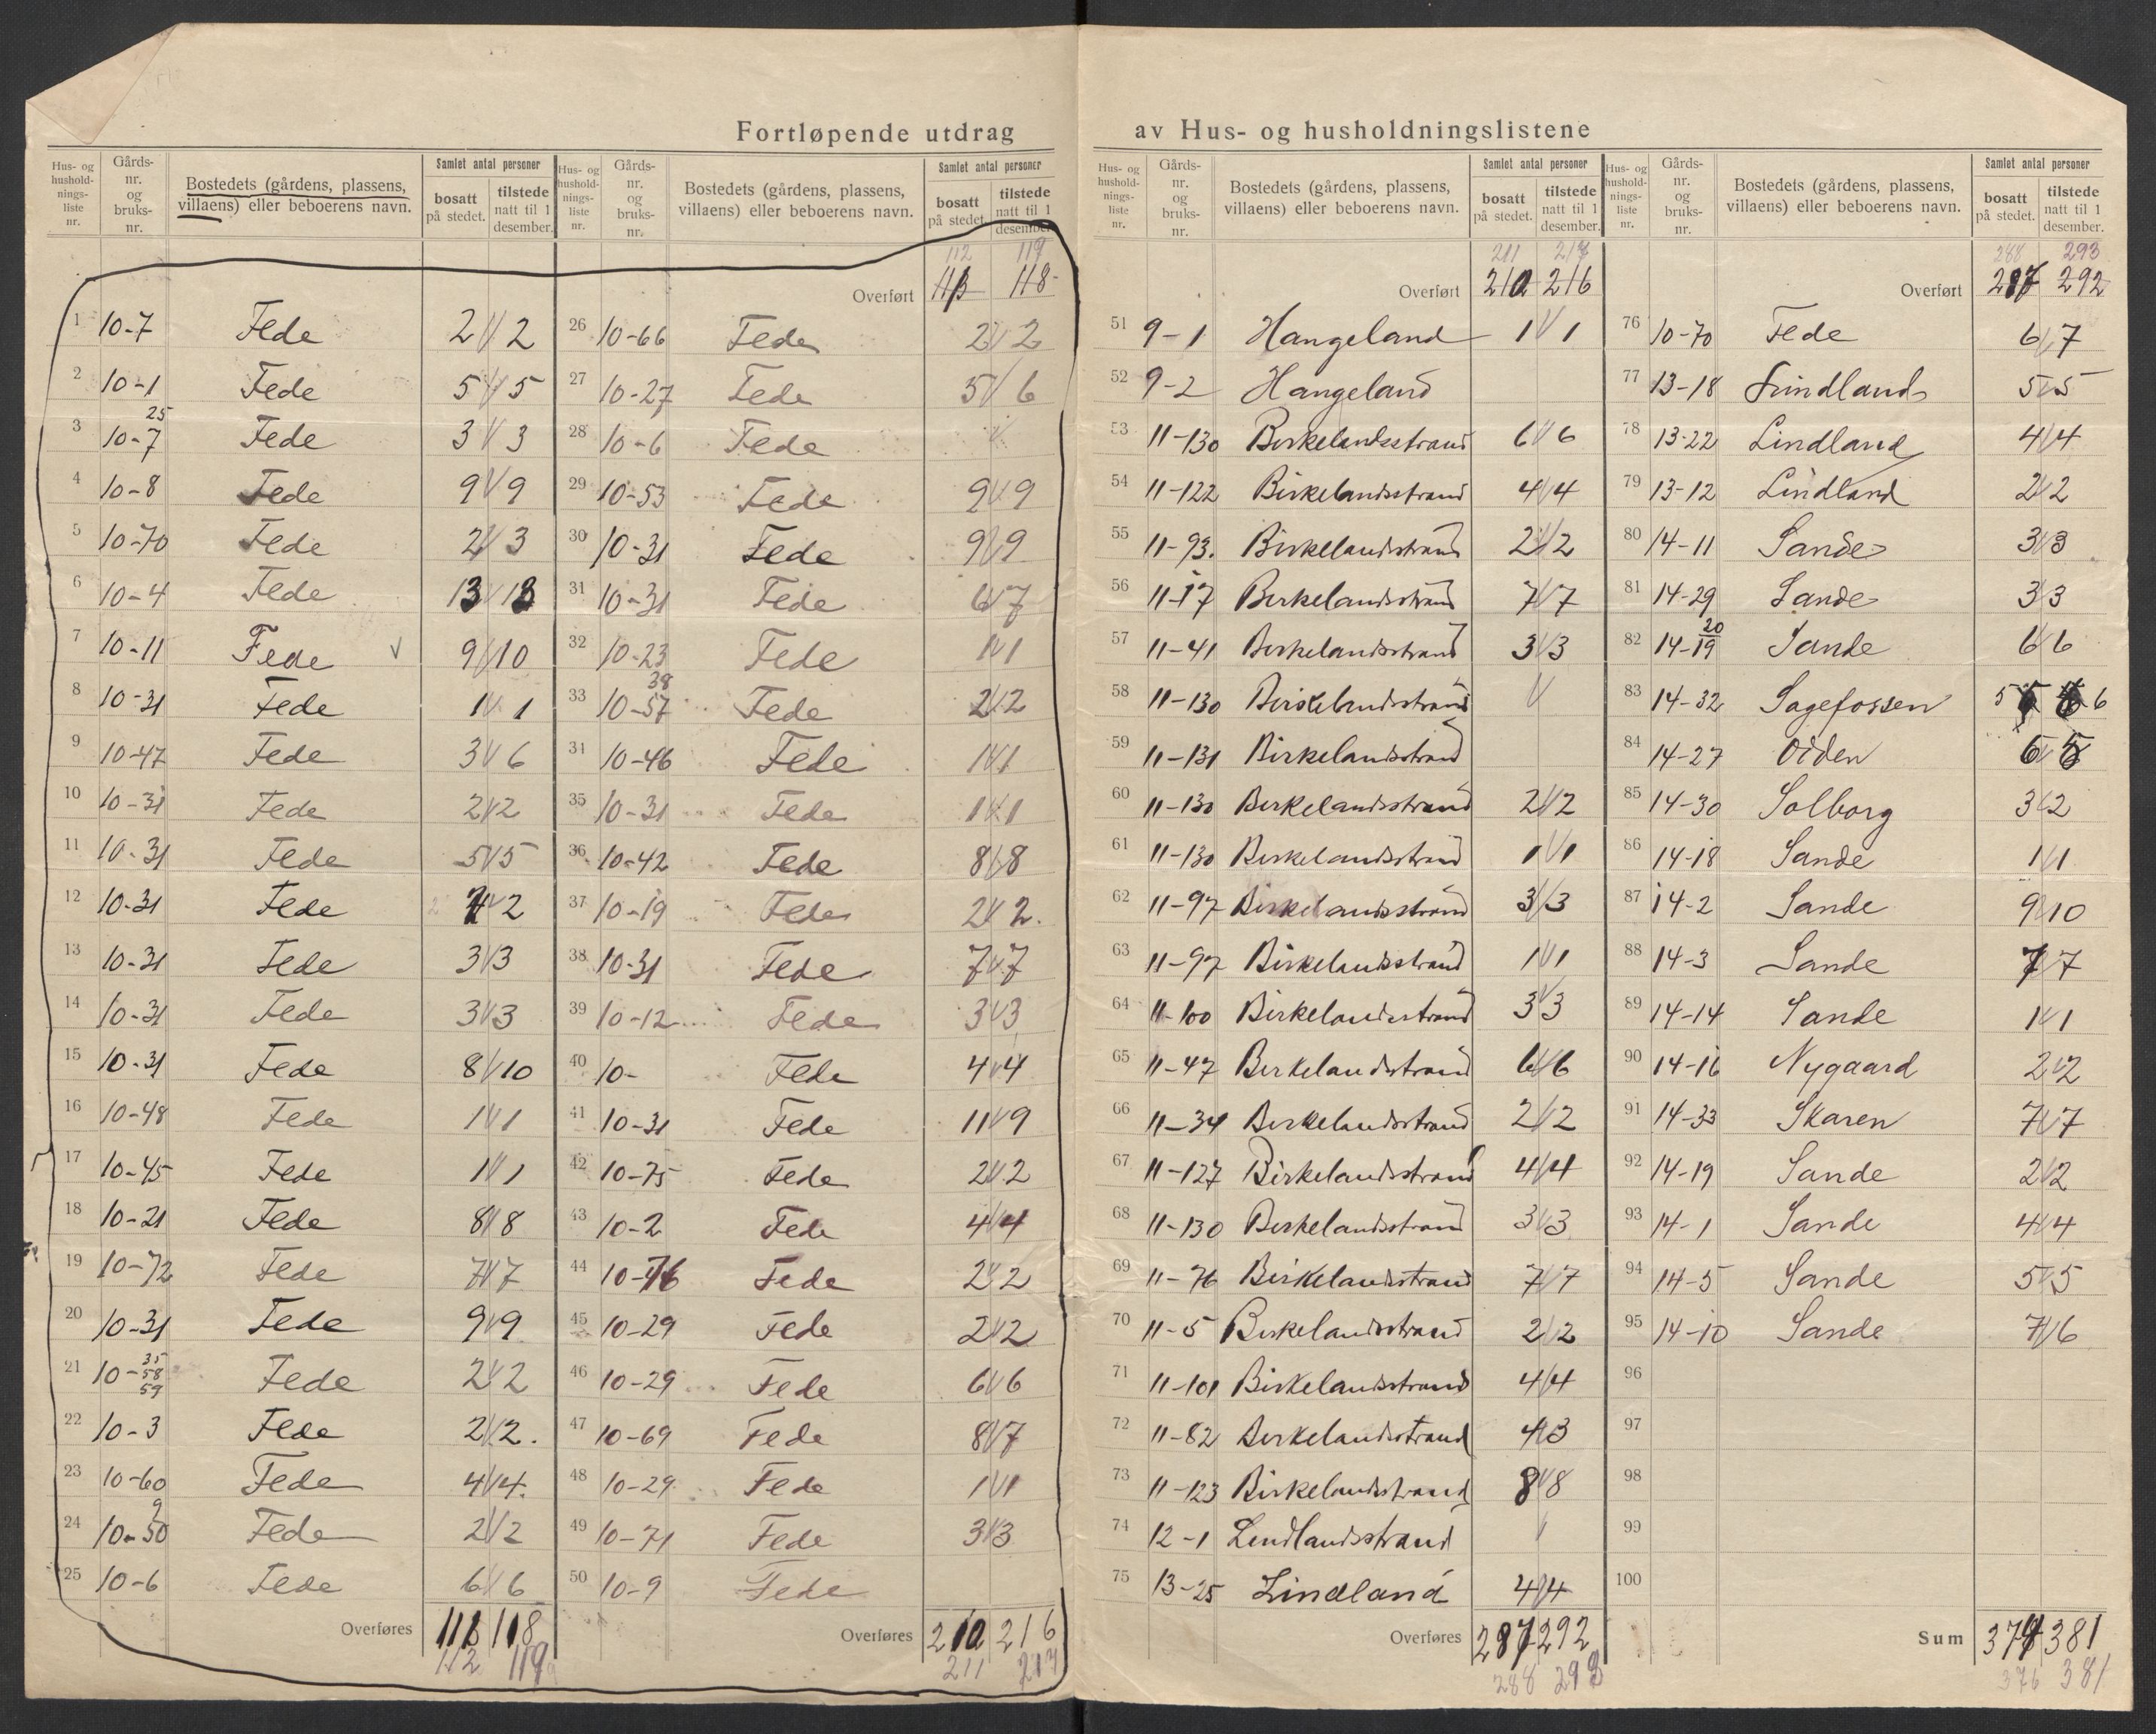 Fortløpende utdrag av Hus- og husholdningslistene
Hus- og husholdningsliste nr. | Gårds-nr. og bruks-nr. | Bostedets (gårdens, plassens, villaens) eller beboerens navn. | Samlet antal personer bosatt på stedet. | tilstede natt til 1 desember.
1 10-7 Fede 2 2
2 10-1 Fede 5 5
3 10-7 25 Fede 3 3
4 10-8 Fede 9 9
5 10-70 Fede 2 3
6 10-4 Fede 13 13
7 10-11 Fede 9 10
8 10-31 Fede 1 1
9 10-47 Fede 3 6
10 10-31 Fede 2 2
11 10-31 Fede 5 5
12 10-31 Fede 2 2
13 10-31 Fede 3 3
14 10-31 Fede 3 3
15 10-31 Fede 8 10
16 10-48 Fede 1 1
17 10-45 Fede 1 1
18 10-21 Fede 8 8
19 10-72 Fede 7 7
20 10-31 Fede 9 9
21 10-35 58 59 Fede 2 2
22 10-3 Fede 2 2
23 10-60 Fede 4 4
24 10-50 9 Fede 2 2
25 10-6 Fede 6 6
Overføres 118
112 119
Hus- og husholdningsliste nr. | Gårds-nr. og bruks-nr. | Bostedets (gårdens, plassens, villaens) eller beboerens navn. | Samlet antal personer bosatt på stedet. | tilstede natt til 1 desember.
112 119
Overført 118
26 10-66 Fede 2 2
27 10-27 Fede 5 6
28 10-6 Fede
29 10-53 Fede 9 9
30 10-31 Fede 9 9
31 10-31 Fede 6 7
32 10-23 Fede 1 1
33 10-57 38 Fede 2 2
34 10-46 Fede 1 1
35 10-31 Fede 1 1
36 10-42 Fede 8 8
37 10-19 Fede 2 2
38 10-31 Fede 7 7
39 10-12 Fede 3 3
40 10- Fede 4 4
41 10-31 Fede 11 9
42 10-75 Fede 2 2
43 10-2 Fede 4 4
44 10-76 Fede 2 2
45 10-29 Fede 2 2
46 10-29 Fede 6 6
47 10-69 Fede 8 7
48 10-29 Fede 1 1
49 10-71 Fede 3 3
50 10-9 Fede
Overføres 210 216
211 217
Hus- og husholdningsliste nr. | Gårds-nr. og bruks-nr. | Bostedets (gårdens, plassens, villaens) eller beboerens navn. | Samlet antal personer bosatt på stedet. | tilstede natt til 1 desember.
211 217
Overført 210 216
51 9-1 Hangeland 1 1
52 9-2 Hangeland
53 11-130 Birkelandsstrand 6 6
54 11-122 Birkelandsstrand 4 4
55 11-93. Birkelandstrand 2 2
56 11-17 Birkelandsstrand 7 7
57 11-41 Birkelandsstrand 3 3
58 11-130 Birkelandsstrand
59 11-131 Birkelandsstrand
60 11-130 Birkelandsstrand 2 2
61 11-130 Birkelandsstrand 1 1
62 11-97 Birkelandsstrand 3 3
63 11-97 Birkelandsstrand 1 1
64 11-100 Birkelandsstrand 3 3
65 11-47 Birkelandstrand 6 6
66 11-34 Birkelandsstrand 2 2
67 11-127 Birkelandsstrand 4 4
68 11-130 Birkelandsstrand 3 3
69 11-76 Birkelandstrand 7 7
70 11-5 Birkelandsstrand 2 2
71 11-101 Birkelandsstrand 4 4
72 11-82 Birkelandsstrand 4 3
73 11-123 Birkelandsstrand 8 8
74 12-1 Lindlandsstrand
75 13-25 Lindland 4 4
Overføres 287 292
288 293
Hus- og husholdningsliste nr. | Gårds-nr. og bruks-nr. | Bostedets (gårdens, plassens, villaens) eller beboerens navn. | Samlet antal personer bosatt på stedet. | tilstede natt til 1 desember.
288 293
Overført 287 292
76 10-70 Fede 6 7
77 13-18 Lindland 5 5
78 13-22 Lindland 4 4
79 13-12 Lindland 2 2
80 14-11 Sande 3 3
81 14-29 Sande 3 3
82 14-19 20 Sande 6 6
83 14-32 Sagefossen 5 6
84 14-27 Oiden 6 5
85 14-30 Solborg 3 2
86 14-18 Sande 1 1
87 14-2 Sande 9 10
88 14-3 Sande 7 7
89 14-14 Sande 1 1
90 14-16 Nygaard 2 2
91 14-33 Skaren 7 7
92 14-19 Sande 2 2
93 14-1 Sande 4 4
94 14-5 Sande 5 5
95 14-10 Sande 7 6
96
97
98
99
100
Sum 381
376 381